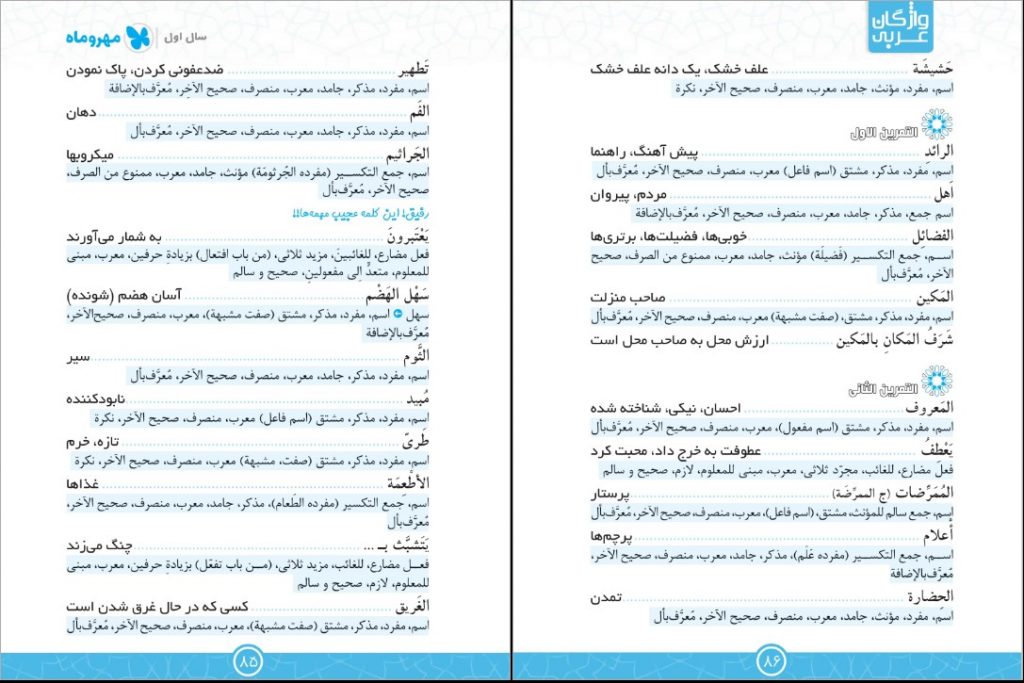 سال اول
مهروماه
تَطهیر ... ضدعفونی کردن، پاک نمودن
اسم، مفرد، مذکر، جامد، معرب، منصرف، صحیح الآخِر، مُعرَّف‌بالإضافة
الفَم ... دهان
اسم، مفرد، مذکر، جامد، معرب، منصرف، صحیح الآخر، مُعرَّف‌بأل
الجَراثیم ... میکروبها
اسم، جمع التکسیر (مفرده الجُرثومَة) مؤنث، جامد، معرب، ممنوع من الصرف،
صحیح الآخر، مُعرَّف‌بأل
رفیق! این کلمه عجیب مهمه‌ها!!
یَعْتَبِرونَ ... به شمار می‌آورند
فعل مضارع، للغائبینَ، مزید ثلاثی، (من باب افتعال) بزیادةِ حرفین، معرب، مبنی
للمعلوم، متعدٍّ اِلی مفعولینِ، صحیح و سالم
سَهْل الهَضْم ... آسان هضم (شونده)
سهل اسم، مفرد، مذکر، مشتق (صفت مشبهة)، معرب، منصرف، صحیح‌الآخر،
مُعرَّف‌بالإضافة
الثَّوم ... سیر
اسم، مفرد، مذکر، جامد، معرب، منصرف، صحیح الآخر، مُعرَّف‌بأل
مُبید ... نابودکننده
اسم، مفرد، مذکر، مشتق (اسم فاعل) معرب، منصرف، صحیح الآخر، نکرة
طَریّ ... تازه، خرم
اسم، مفرد، مذکر، مشتق (صفت، مشبهة) معرب، منصرف، صحیح الآخر، نکرة
الأطْعِمَة ... غذاها
اسم، جمع التکسیر (مفرده الطَعام)، مذکر، جامد، معرب، منصرف، صحیح الآخر،
مُعرَّف‌بأل
یَتَشَبَّث بـ ... چنگ می‌زند
فعـل مضارع، للغائب، مزید ثلاثی، (مـن باب تفعّل) بزیادةِ حرفین، معرب، مبنی
للمعلوم، لازم، صحیح و سالم
الغَریق ... کسی که در حال غرق شدن است
اسم، مفرد، مذکر، مشتق (صفت مشبهة)، معرب، منصرف، صحیح الآخر، مُعرَّف‌بأل
۸۵
واژگان
عربی
حَشیشَة ... علف خشک، یک دانه علف خشک
اسم، مفرد، مؤنث، جامد، معرب، منصرف، صحیح الآخر، نکرة
التمرین الاول
الرائدِ ... پیش آهنگ، راهنما
اسم، مفرد، مذکر، مشتق (اسم فاعل) معرب، منصرف، صحیح الآخر، مُعرَّف‌بأل
اَهل ... مردم، پیروان
اسم جمع، مذکر، جامد، معرب، منصرف، صحیح الآخر، مُعرَّف‌بالإضافة
الفضائِل ... خوبی‌ها، فضیلت‌ها، برتری‌ها
اسـم، جمع التکسـیر (فَضیلَة) مؤنث، جامد، معرب، ممنوع من الصرف، صحیح
الآخر، مُعرَّف‌بأل
المَکین ... صاحب منزلت
اسم، مفرد، مذکر، مشتق، (صفت مشبهة) معرب، منصرف، صحیح الآخر، مُعرَّف‌بأل
شَرَفُ المَکانِ بالمَکین ... ارزش محل به صاحب محل است
التمرین الثّانی
المَعروف ... احسان، نیکی، شناخته شده
اسم، مفرد، مذکر، مشتق (اسم مفعول)، معرب، منصرف، صحیح الآخر، مُعرَّف‌بأل
یَعْطِفُ ... عطوفت به خرج داد، محبت کرد
فعل مضارع، للغائب، مجرّد ثلاثی، معرب، مبنی للمعلوم، لازم، صحیح و سالم
المُمَرِّضات (ج الممرِّضَة) ... پرستار
اسم، جمع سالم للمؤنث، مشتق، (اسم فاعل)، معرب، منصرف، صحیح الآخر، مُعرَّف‌بأل
أعْلام ... پرچم‌ها
اسـم، جمع التکسـیر (مفرده عَلَم)، مذکر، جامد، معرب، منصرف، صحیح الآخر،
مُعرَّف‌بالإضافة
الحضارة ... تمدن
اسم، مفرد، مؤنث، جامد، معرب، منصرف، صحیح الآخر، مُعرَّف‌بأل
۸۶